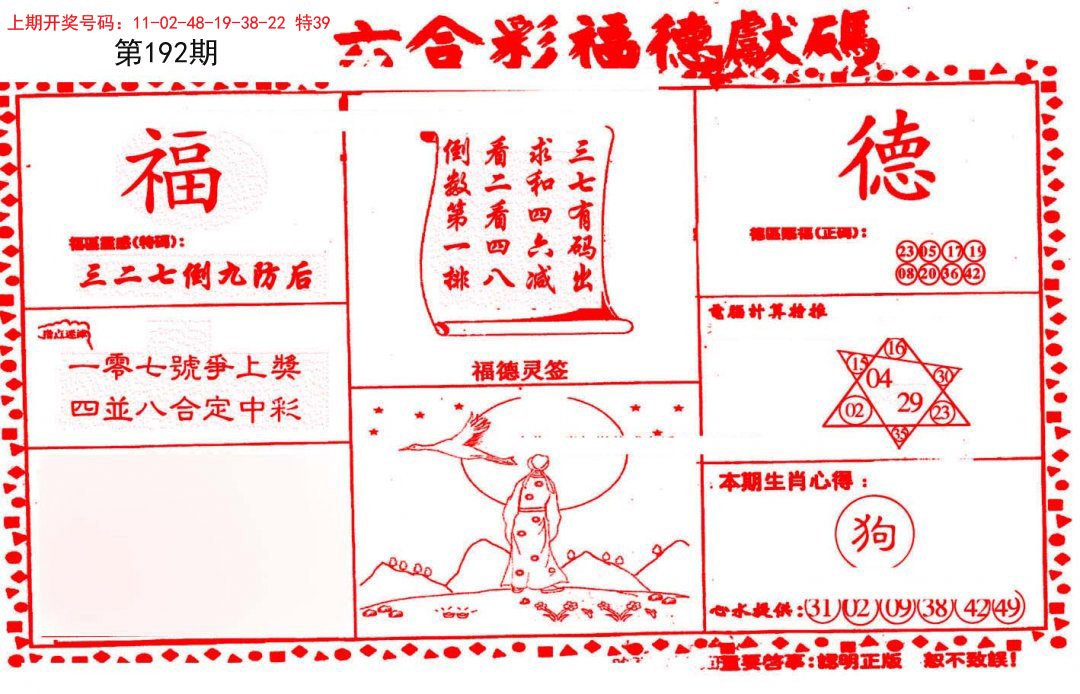 上期开奖号码：11-02-48-19-38-22 特39
第192期
六合彩福德獻碼
福
福區靈感(特碼)：
三二七倒九防后
一零七號爭上獎
四並八合定中彩
三七有码出
求和四六减
看二看四八
倒数第一排
福德灵签
德
德區賜福(正碼)：
23 05 17 19
08 20 36 42
電腦計算粉推
16
15 30
04
29
02 23
35
本期生肖心得：
狗
心水提供：31 02 09 38 42 49
重要啓事：認明正版 恕不致誤！